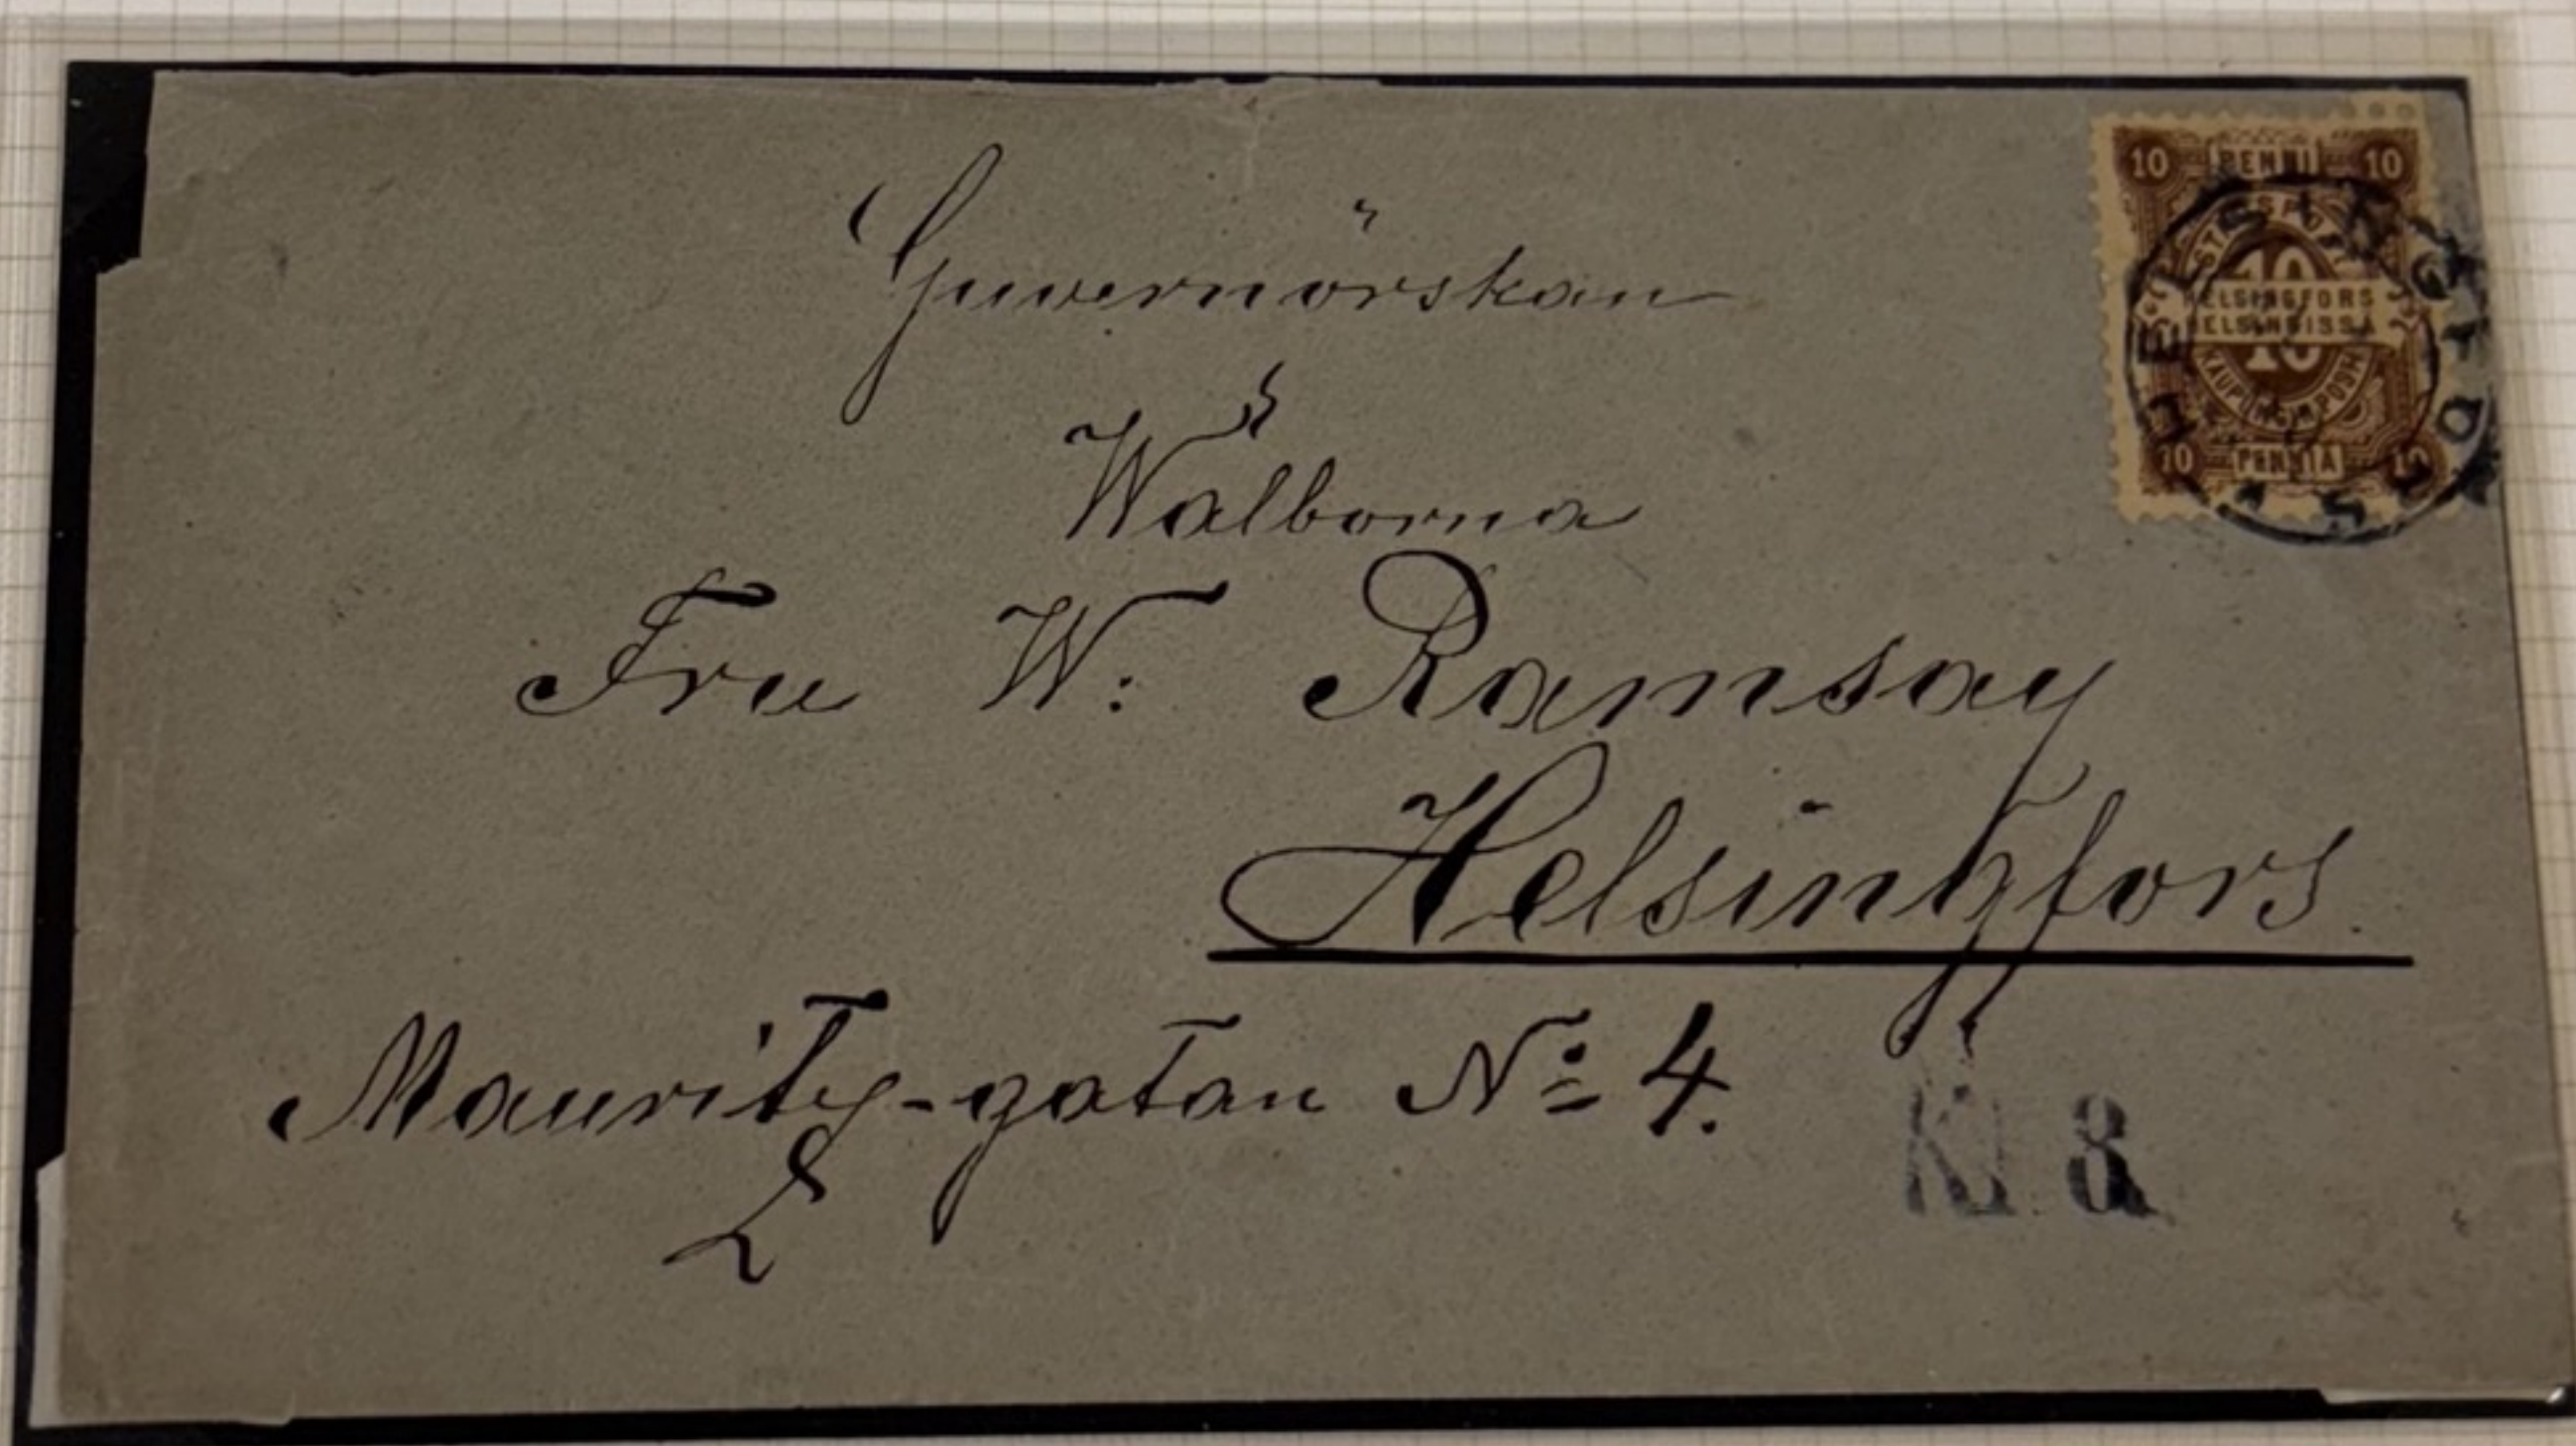 10 PENNI 10
STADSPOST
HELSINGFORS
HELSINGISSÄ
10
KAUPUNGINPOSTI
10 PENNIÄ 10
HELSINGFORS
Guvernörskan
Wälborna
Fru W: Ramsay
Helsingfors.
Mauritz-gatan No 4.
Kl 8